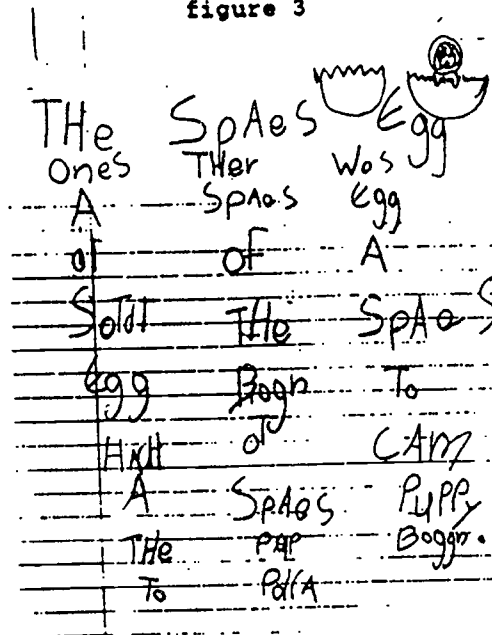 figure 3
THe SpAes Egg
Ones THer Wos
A SpAes Egg
of of A
THe SpAe S
Egg Bogn To
HxH of CAM
A SpAes PuPPy
THe PAP Boggn.
To